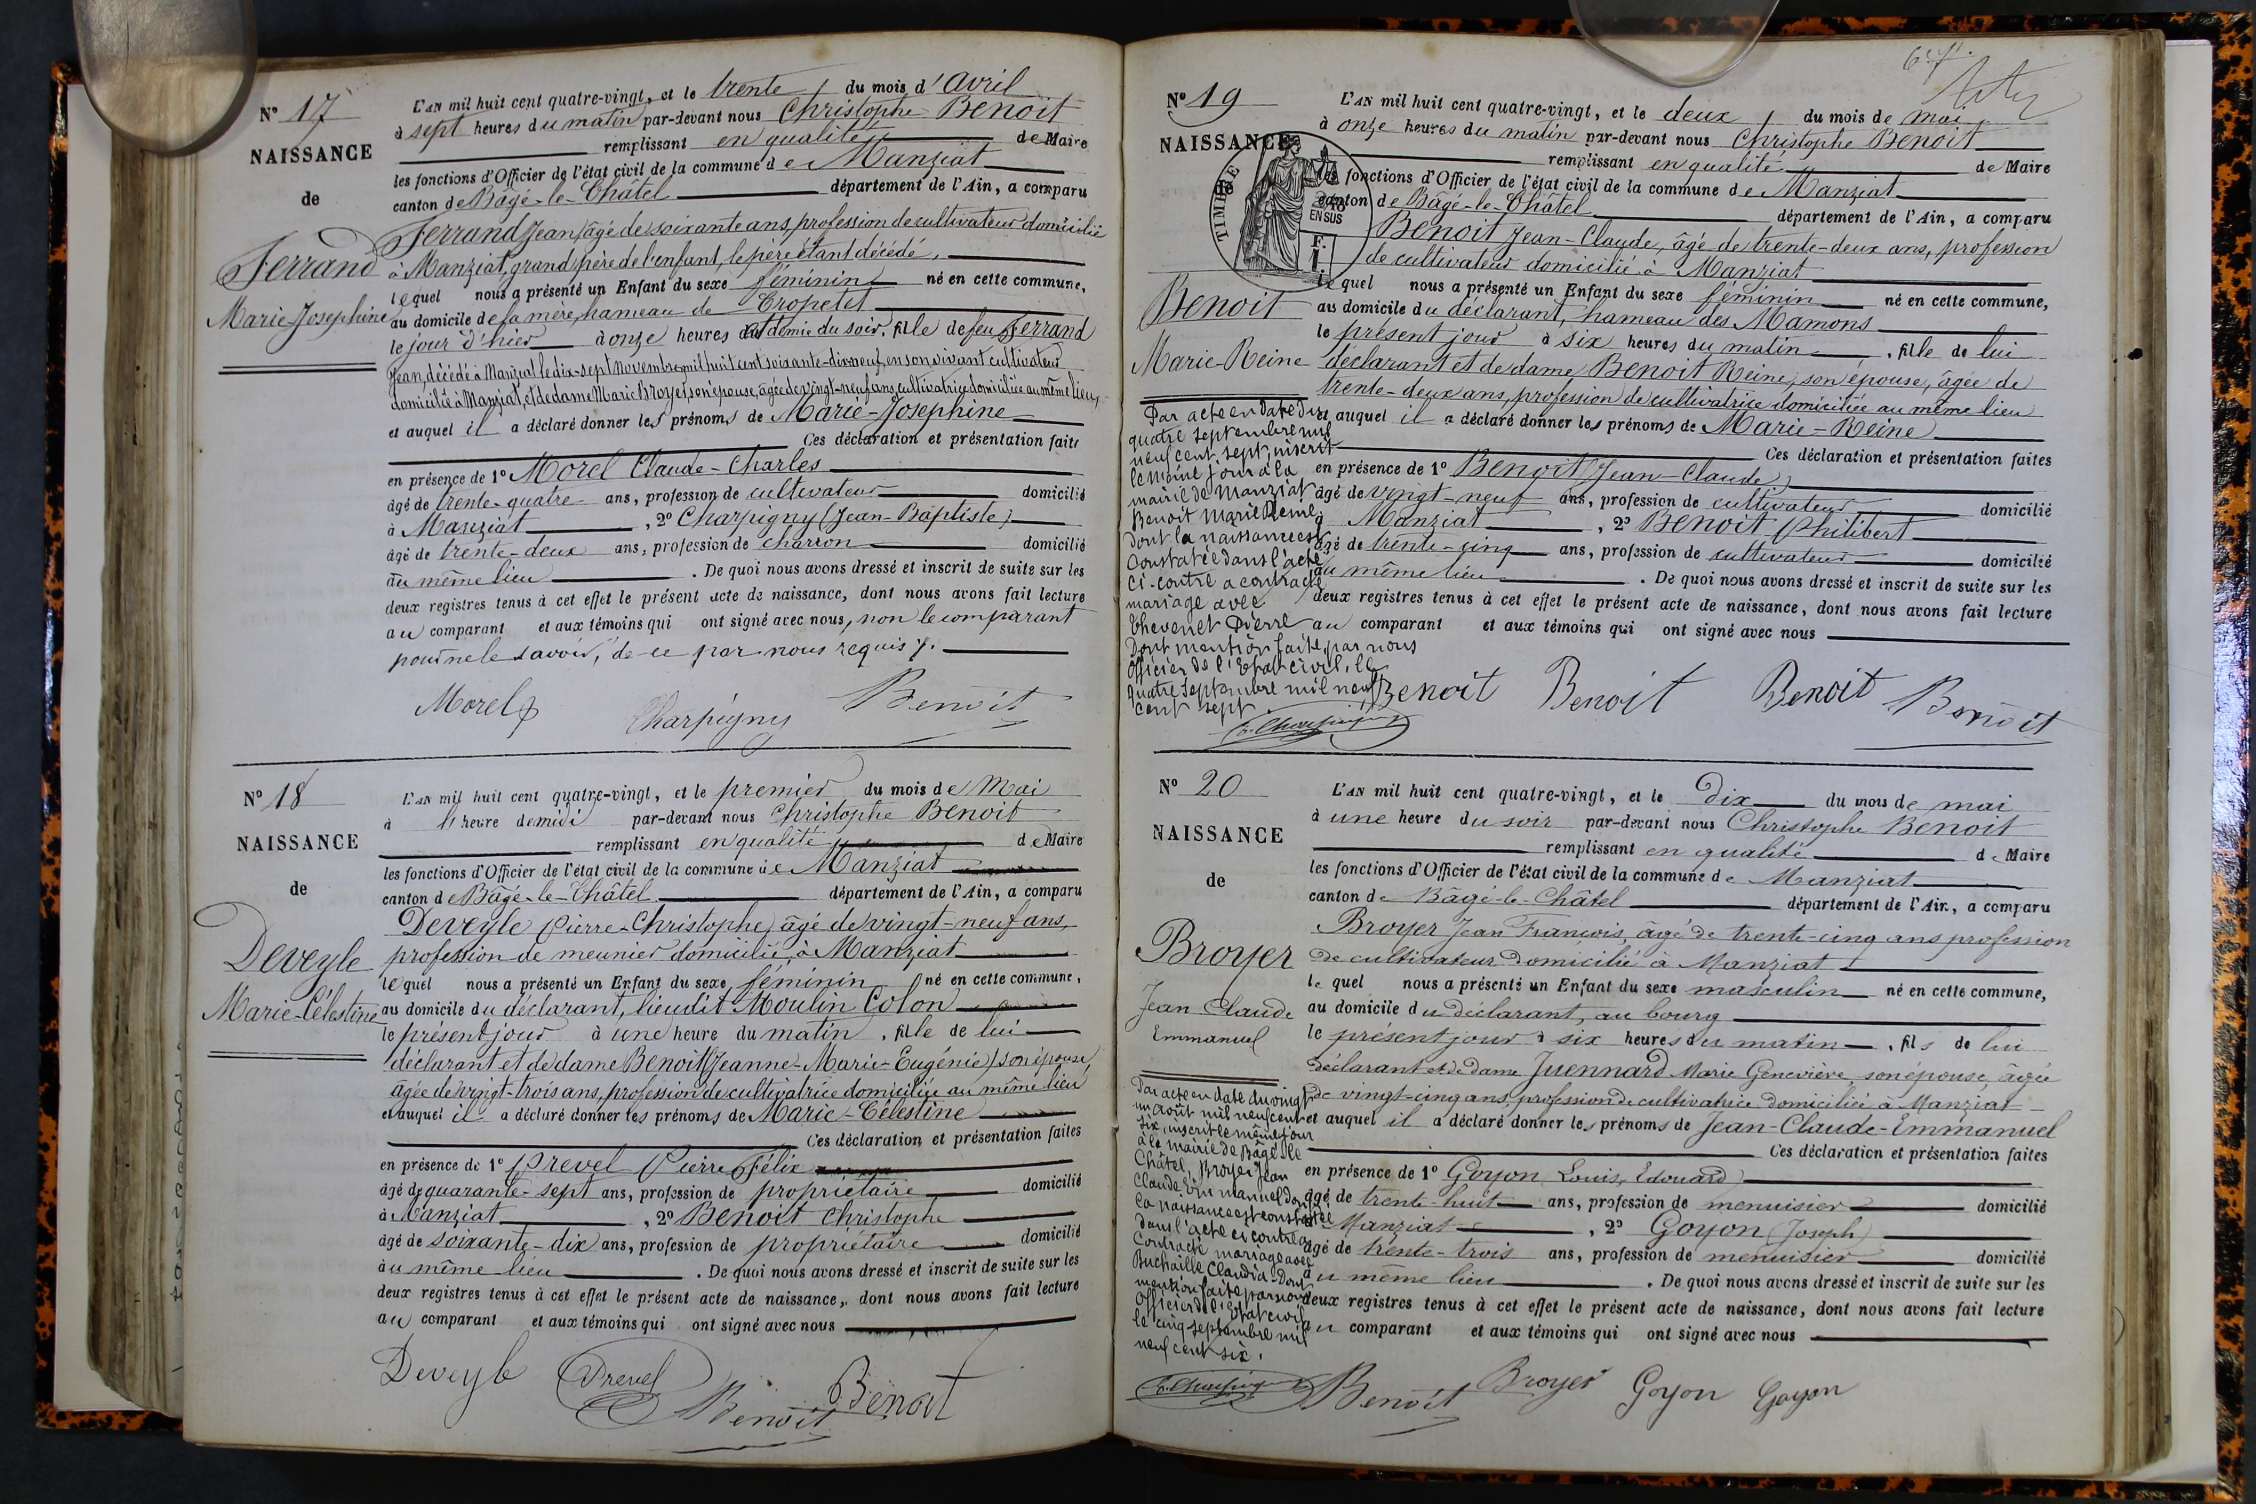 N° 17
NAISSANCE
de
Ferrand
Marie-Josephine
L'AN mil huit cent quatre-vingt, et le trente du mois d'avril
à sept heures du matin par-devant nous Christophe Benoit
remplissant en qualité de Maire
les fonctions d'Officier de l'état civil de la commune de Manziat
canton de Bâgé-le-Châtel département de l'Ain, a comparu
Ferrand Jean, âgé de soixante ans, profession de cultivateur domicilié
à Manziat, grand père de l'enfant, le père étant décédé,
lequel nous a présenté un Enfant du sexe féminin né en cette commune,
au domicile de sa mère, hameau de Cropetet
le jour d'hier à onze heures et demie du soir, fille de feu Ferrand
Jean, décédé à Manziat le dix-sept novembre mil huit cent soixante-dix-neuf, en son vivant cultivateur
domicilié à Manziat, et de dame Marie Broyer, son épouse, âgée de vingt-neuf ans, cultivatrice domiciliée au même lieu,
et auquel il a déclaré donner les prénoms de Marie-Josephine
Ces déclaration et présentation faites
en présence de 1° Morel Claude-Charles
âgé de trente-quatre ans, profession de cultivateur domicilié
à Manziat, 2° Charpigny (Jean-Baptiste)
âgé de trente-deux ans, profession de charron domicilié
au même lieu. De quoi nous avons dressé et inscrit de suite sur les
deux registres tenus à cet effet le présent acte de naissance, dont nous avons fait lecture
au comparant et aux témoins qui ont signé avec nous, non le comparant
pour ne le savoir, de ce par nous requis.
Morel Charpigny Benoit
N° 18
NAISSANCE
de
Deveyle
Marie-Célestine
L'AN mil huit cent quatre-vingt, et le premier du mois de Mai
à l'heure de midi par-devant nous Christophe Benoit
remplissant en qualité de Maire
les fonctions d'Officier de l'état civil de la commune de Manziat
canton de Bâgé-le-Châtel département de l'Ain, a comparu
Deveyle (Pierre-Christophe) âgé de vingt-neuf ans,
profession de meunier domicilié à Manziat
lequel nous a présenté un Enfant du sexe féminin né en cette commune,
au domicile du déclarant, lieudit Moulin Colon
le présent jour à une heure du matin, fille de lui
déclarant et de dame Benoit (Jeanne-Marie-Eugénie) son épouse,
âgée de vingt-trois ans, profession de cultivatrice domiciliée au même lieu
et auquel il a déclaré donner les prénoms de Marie-Célestine
Ces déclaration et présentation faites
en présence de 1° Prevel Pierre Félix
âgé de quarante-sept ans, profession de propriétaire domicilié
à Manziat, 2° Benoit Christophe
âgé de soixante-dix ans, profession de propriétaire domicilié
au même lieu. De quoi nous avons dressé et inscrit de suite sur les
deux registres tenus à cet effet le présent acte de naissance, dont nous avons fait lecture
au comparant et aux témoins qui ont signé avec nous
Deveyle Prevel Benoit Benoit
N° 19
NAISSANCE
TIMBRE
EN SUS
Benoit
Marie-Reine
L'AN mil huit cent quatre-vingt, et le deux du mois de mai
à onze heures du matin par-devant nous Christophe Benoit
remplissant en qualité de Maire
les fonctions d'Officier de l'état civil de la commune de Manziat
canton de Bâgé-le-Châtel département de l'Ain, a comparu
Benoit Jean-Claude, âgé de trente-deux ans, profession
de cultivateur domicilié à Manziat
lequel nous a présenté un Enfant du sexe féminin né en cette commune,
au domicile du déclarant, hameau des Mamons
le présent jour à six heures du matin, fille de lui
déclarant et de dame Benoit Reine, son épouse, âgée de
trente-deux ans, profession de cultivatrice domiciliée au même lieu
et auquel il a déclaré donner les prénoms de Marie-Reine
Ces déclaration et présentation faites
en présence de 1° Benoit (Jean-Claude)
âgé de vingt-neuf ans, profession de cultivateur domicilié
à Manziat, 2° Benoit Philibert
âgé de trente-cinq ans, profession de cultivateur domicilié
au même lieu. De quoi nous avons dressé et inscrit de suite sur les
deux registres tenus à cet effet le présent acte de naissance, dont nous avons fait lecture
au comparant et aux témoins qui ont signé avec nous
Par acte en date du
quatre septembre mil
neuf cent sept, inscrit
le même jour à la
mairie de Manziat
Benoit Marie Reine
dont la naissance est
constatée dans l'acte
ci-contre a contracté
mariage avec
Thevenet Pierre
Dont mention faite, par nous
Officier de l'Etat civil, le
quatre septembre mil neuf
cent sept.
Benoit Benoit Benoit Benoit
N° 20
NAISSANCE
de
Broyer
Jean Claude
Emmanuel
L'AN mil huit cent quatre-vingt, et le Dix du mois de mai
à une heure du soir par-devant nous Christophe Benoit
remplissant en qualité de Maire
les fonctions d'Officier de l'état civil de la commune de Manziat
canton de Bâgé-le-Châtel département de l'Ain, a comparu
Broyer Jean François, âgé de trente-cinq ans profession
de cultivateur domicilié à Manziat
lequel nous a présenté un Enfant du sexe masculin né en cette commune,
au domicile du déclarant, au bourg
le présent jour à six heures du matin, fils de lui
déclarant et de dame Juennard Marie Geneviève, son épouse, âgée
de vingt-cinq ans, profession de cultivatrice domiciliée à Manziat
et auquel il a déclaré donner les prénoms de Jean-Claude-Emmanuel
Ces déclaration et présentation faites
en présence de 1° Goyon (Louis, Edouard)
âgé de trente-huit ans, profession de menuisier domicilié
à Manziat, 2° Goyon (Joseph)
âgé de trente-trois ans, profession de menuisier domicilié
au même lieu. De quoi nous avons dressé et inscrit de suite sur les
deux registres tenus à cet effet le présent acte de naissance, dont nous avons fait lecture
au comparant et aux témoins qui ont signé avec nous
Par acte en date du vingt
un août mil neuf cent
six, inscrit le même jour
à la mairie de Bâgé le
Châtel, Broyer Jean
Claude Emmanuel dont
la naissance est constatée
dans l'acte ci contre a
contracté mariage avec
Buchaille Claudia. Dont
mention faite par nous
Officier de l'Etat civil
le cinq septembre mil
neuf cent six.
Benoit Broyer Goyon Goyon